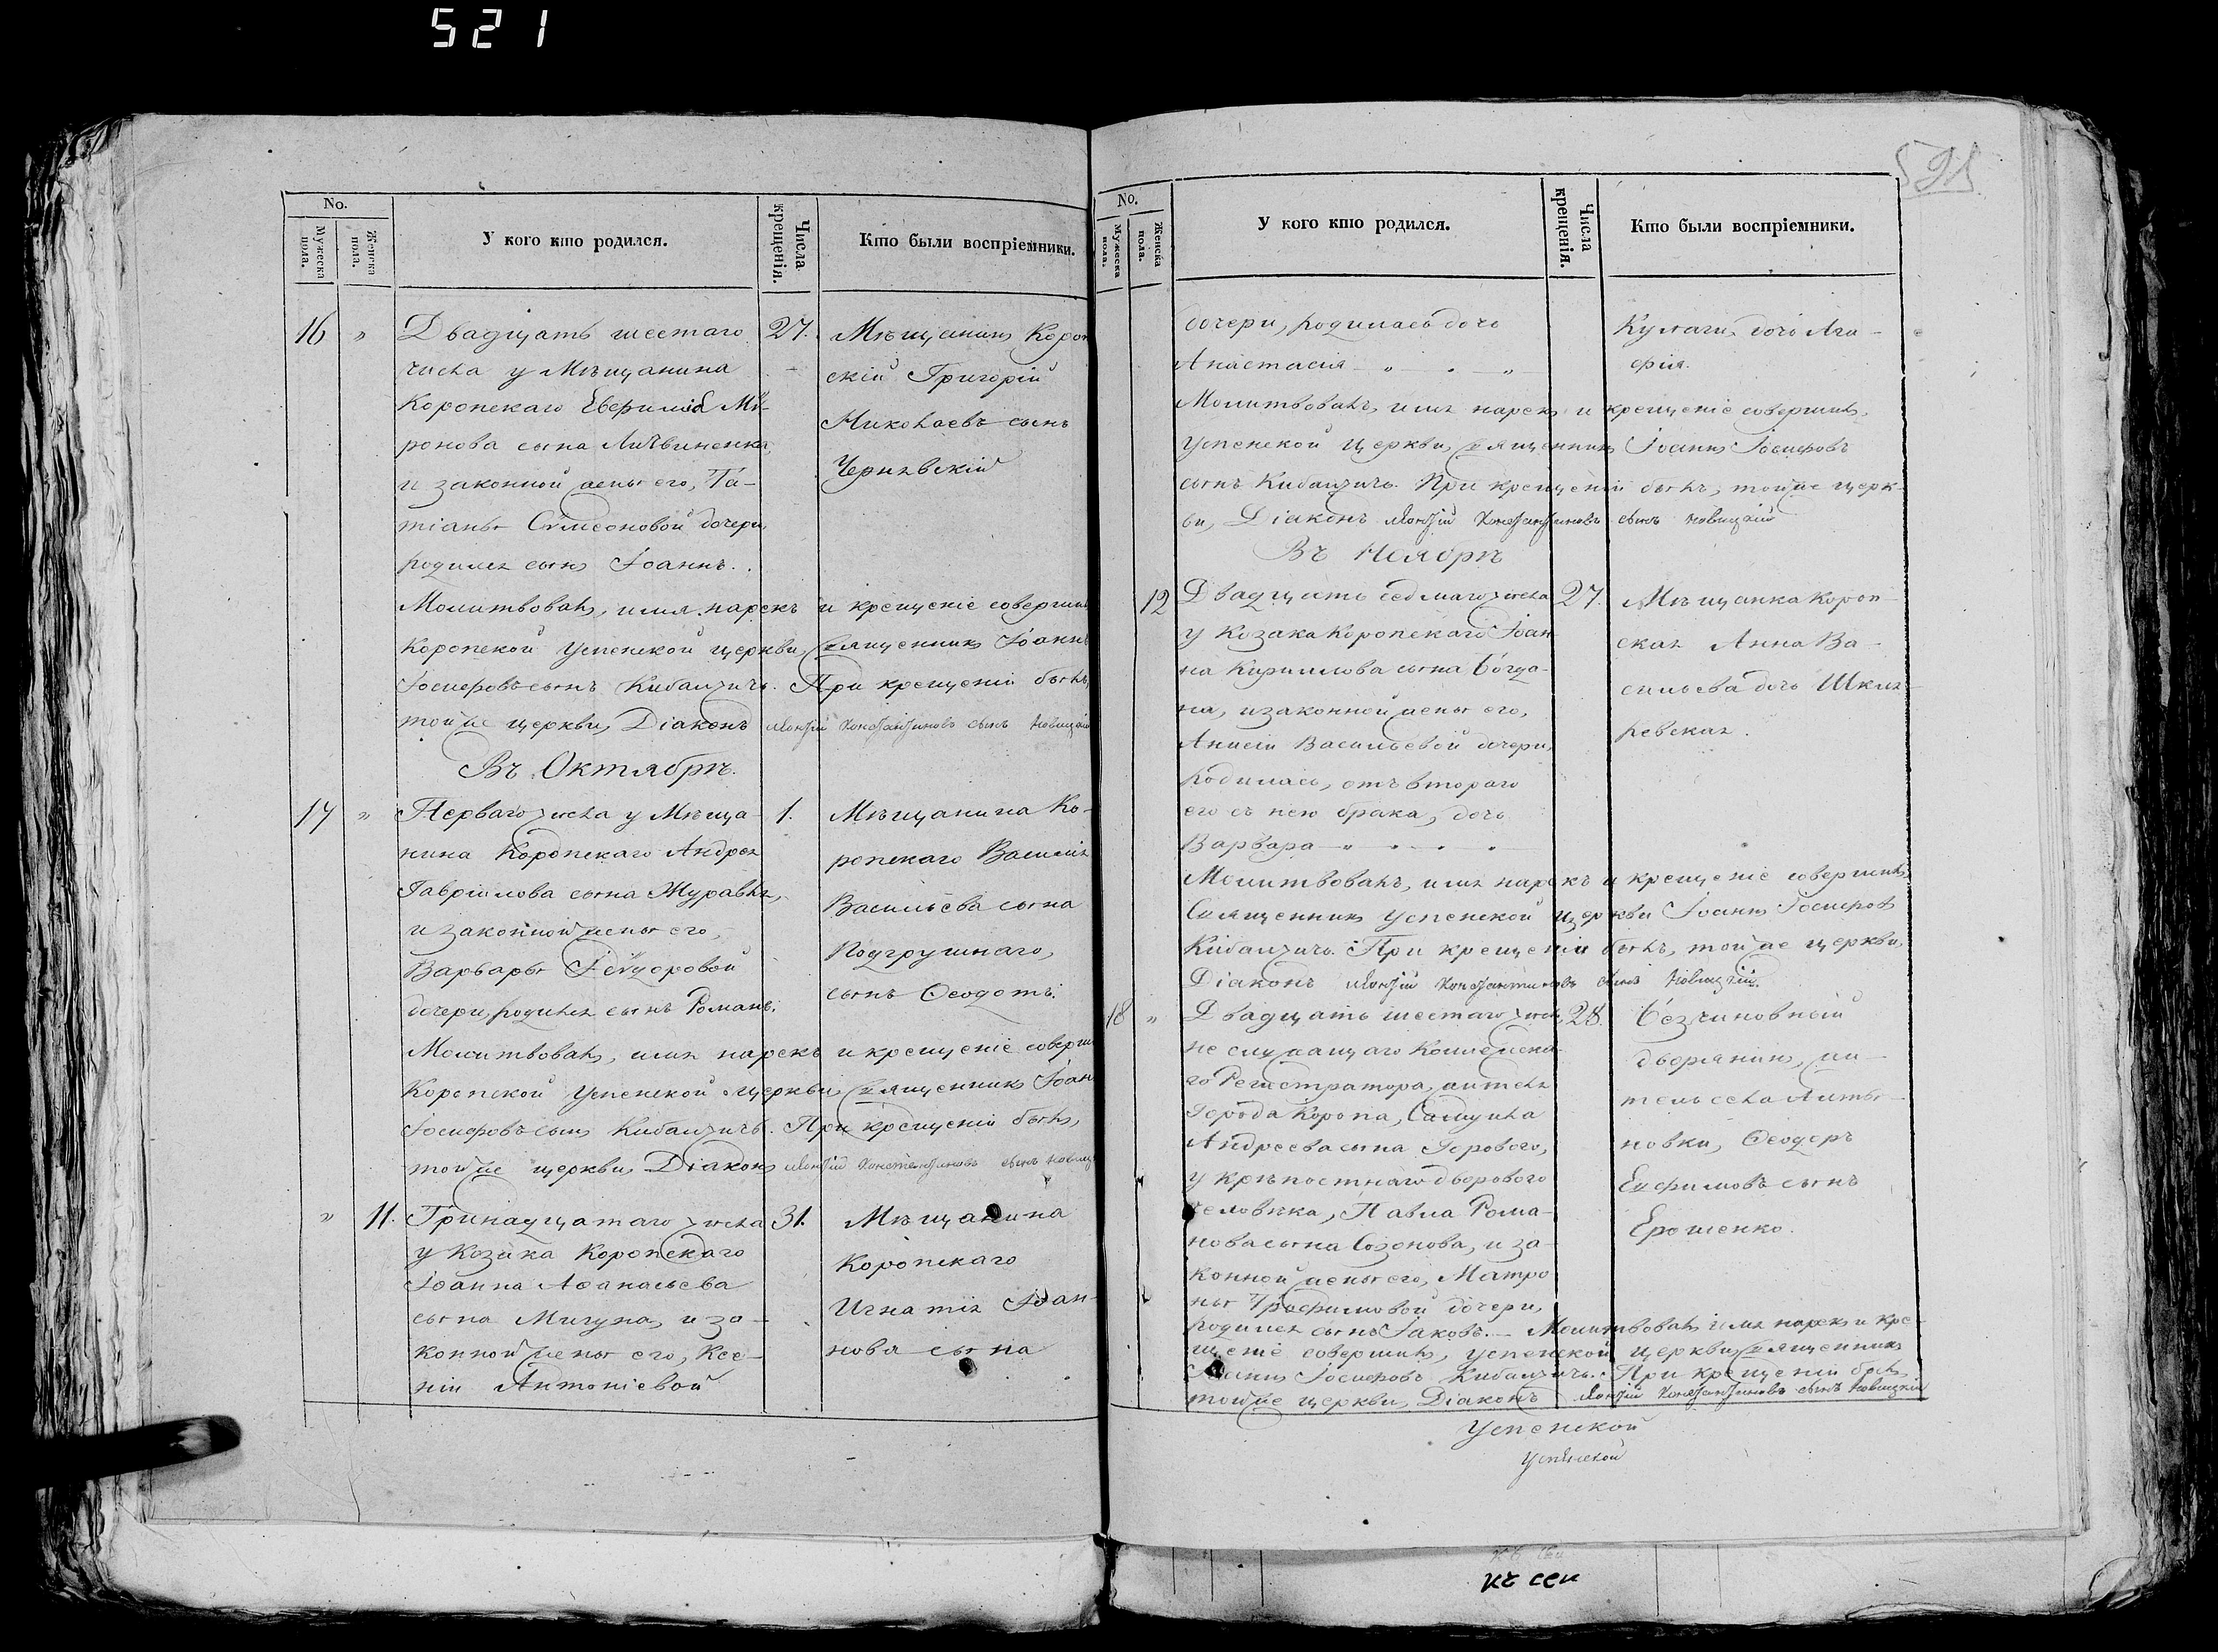 521
521
No.
Мужеска пола.
Женска пола.
У кого кто родился.
Числа крещенія.
Кто были воспріемники.
16 " Двадцать шестаго 27. Мѣщанинъ Короп
числа у Мѣщанина скій Григорій
Коропскаго Евфимія Ми- Николаевъ сынъ
ронова сына Литвиненка, Чернявскій
и законной жены его, Та-
тіаны Сѵмеоновой дочери,
родился сынъ Іоаннъ.
Молитвовалъ, имя нарекъ и крещеніе совершилъ
Коропской Успенской церкви, Священникъ Іоаннъ
Іосифовъ сынъ Кибальчичъ. При крещеніи былъ,
тойже церкви, Діаконъ Константиновъ сынъ Новицкій
Въ Октябрѣ.
17 " Перваго числа у Мѣща- 1. Мѣщанина Ко-
нина Коропскаго Андрея ропскаго Василія
Гавріилова сына Журавля, Васильева сына
и законной жены его, Подгрушнаго,
Варвары Ѳеодоровой сынъ Ѳеодотъ.
дочери, родился сынъ Романъ.
Молитвовалъ, имя нарекъ и крещеніе соверши
Коропской Успенской церкви, Священникъ Іоан
Іосифовъ сынъ Кибальчичъ. При крещеніи былъ,
тойже церкви, Діаконъ Константиновъ сынъ Новиц
" 11. Тринадцатаго числа 31. Мѣщанина
у Козака Коропскаго Коропскаго
Іоанна Аѳанасьева Игнатія Іоан-
сына Мигуна, и за- нова сына
конной жены его, Ксе-
ніи Антоніевой
No.
Мужеска пола.
Женска пола.
У кого кто родился.
Числа крещенія.
Кто были воспріемники.
дочери, родилась дочь Кулаги, дочь Ага-
Анастасія " " фія.
Молитвовалъ, имя нарекъ и крещеніе совершилъ,
Успенской церкви, Священникъ Іоаннъ Іосифовъ
сынъ Кибальчичъ. При крещеніи былъ, тойже церк-
ви, Діаконъ Константиновъ сынъ Новицкій
Въ Ноябрѣ
12 Двадцать седмаго числа 27. Мѣщанка Короп-
у Козака Коропскаго Іоан- ская Анна Ва-
на Кириллова сына Богда- сильева дочь Шкля-
на, и законной жены его, ревская.
Анисіи Васильевой дочери,
родилась, отъ втораго
его съ нею брака, дочь
Варвара " "
Молитвовалъ, имя нарекъ и крещеніе совершилъ,
Священникъ Успенской церкви Іоаннъ Іосифовъ
Кибальчичъ. При крещеніи былъ, тойже церкви,
Діаконъ Константиновъ сынъ Новицкій.
18 " Двадцать шестаго числа, 28. Безчиновный
не служащаго Коллежска- дворянинъ, жи-
го Регистратора, жителя тель села
города Коропа, Самуила новки, Ѳеодоръ
Андреева сына Горового, Евфимовъ сынъ
у крѣпостнаго дворового Ерошенко.
человѣка, Павла Рома-
нова сына Созонова, и за-
конной жены его, Матро-
ны Трофимовой дочери,
родился сынъ Іаковъ. — Молитвовалъ имя нарекъ и кре-
щеніе совершилъ, Успенской церкви, Священникъ
Іоаннъ Іосифовъ Кибальчичъ. При крещеніи былъ
тойже церкви, Діаконъ Константиновъ сынъ Новицкій
Успенской
Успенской